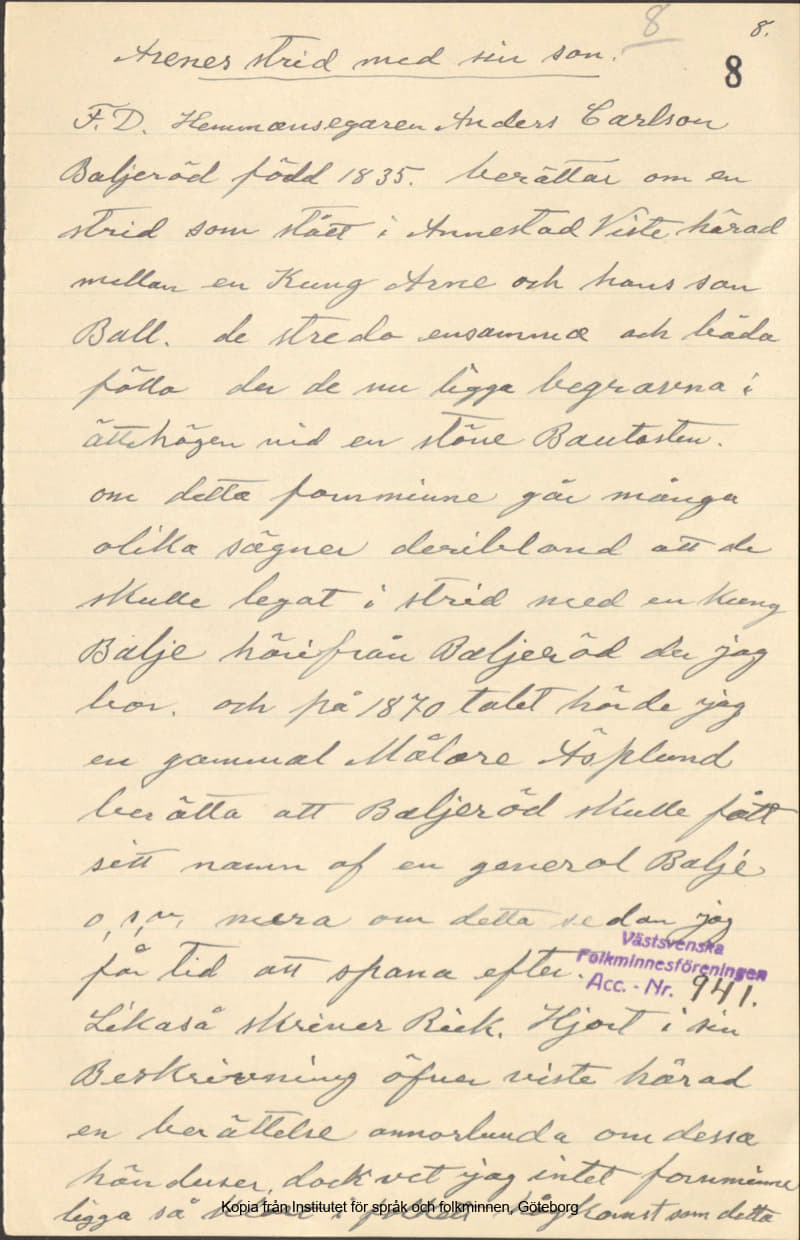 8 8.
Arenes strid med sin son. 8
F.D. Hemmansegaren Anders Carlson
Baljeröd född 1835. berättar om en
strid som stått i Annestad Viste härad
mellan en Kung Arne och hans son
Ball. de stredo ensamma och båda
föllo der de nu ligga begravna i
ättehögen vid en störe Bautasten.
om detta fornminne går många
olika sägner deribland att de
skulle legat i strid med en Kung
Balje härifrån Baljeröd der jag
bor. och på 1870 talet hörde jag
en gammal Målare Äsplund
berätta att Baljeröd skulle fått
sitt namn af en general Balje
o,s,v, mera om detta sedan jag
får tid att spana efter.
Västsvenska
Folkminnesföreningen
Acc. - Nr. 941.
Likaså skriver Rick. Hjort i sin
Beskrivning öfver viste härad
en berättelse annorlunda om dessa
händelser, dock vet jag intet fornminne
ligga så i folkets hågkomst som detta
Kopia från Institutet för språk och folkminnen, Göteborg